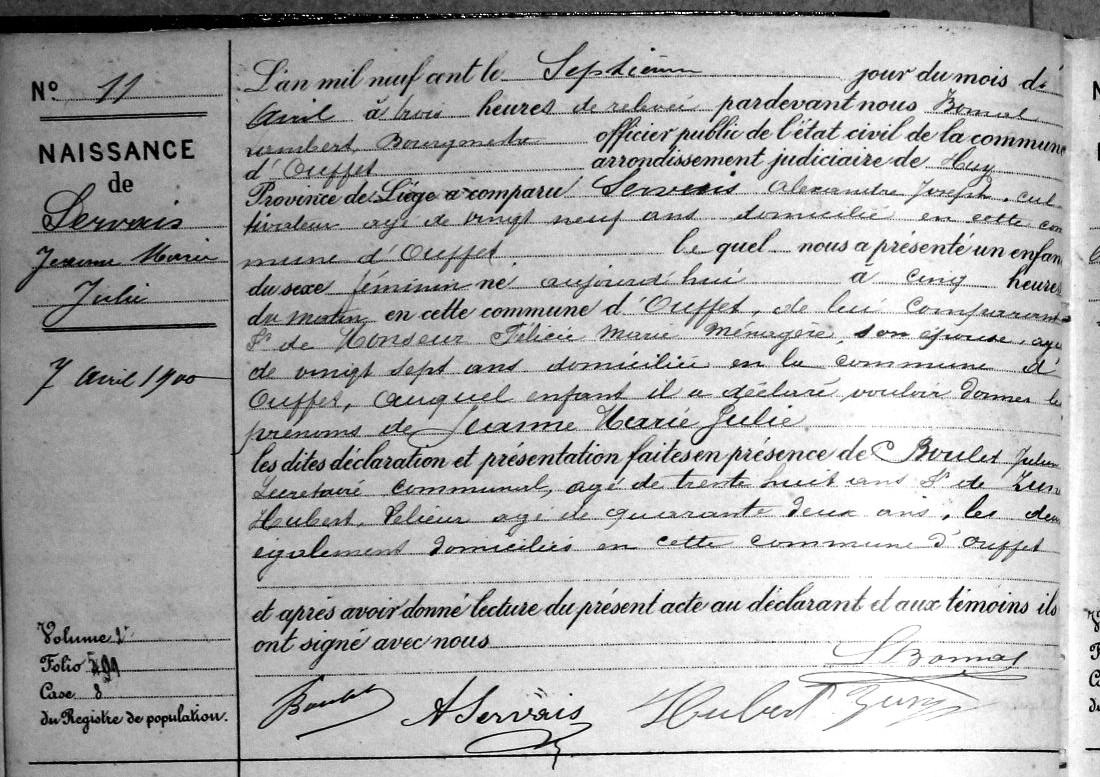 N° 11
NAISSANCE
de
Servais
Jeanne Marie
Julie
7 Avril 1900
Volume 2
Folio
Case 8
du Registre de population.
L'an mil neuf cent le Septième jour du mois de
Avril à trois heures de relevée pardevant nous Bomal
Lambert, Bourgmestre officier public de l'état civil de la commune
d'Ouffet arrondissement judiciaire de Huy
Province de Liége a comparu Servais Alexandre Joseph, cul
tivateur agé de vingt neuf ans domicilié en cette com
mune d'Ouffet. le quel nous a présenté un enfant
du sexe féminin né aujourd'hui à cinq heures
du matin, en cette commune d'Ouffet, de lui comparant
& de Monseur Félicie Marie Ménagère, son épouse, agée
de vingt sept ans domiciliée en la commune d'
Ouffet, auquel enfant il a déclaré vouloir donner les
prénoms de Jeanne Marie Julie
les dites déclaration et présentation faites en présence de Boulet Julien
Secrétaire communal, agé de trente huit ans & de
Hubert, agé de quarante deux ans, les deux
également domiciliés en cette commune d'Ouffet
et après avoir donné lecture du présent acte au déclarant et aux témoins ils
ont signé avec nous
LBomal
Boulet A Servais Hubert